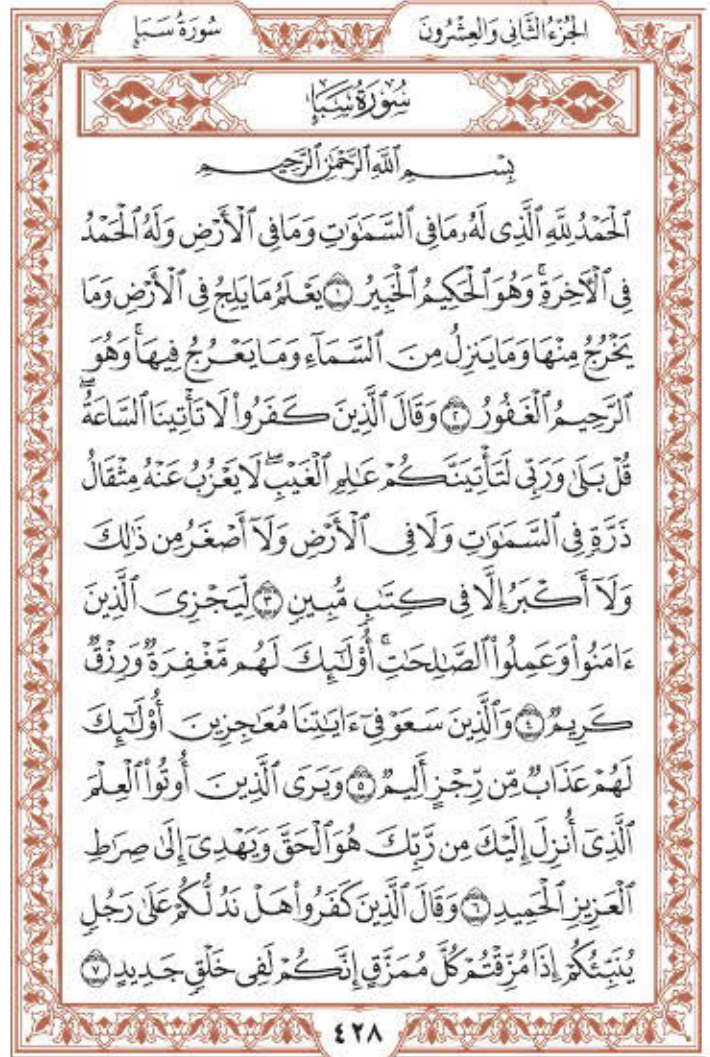 الجُزْءُ الثَّانِي وَالعِشْرُونَ
سُورَةُ سَبَإٍ
سُورَةُ سَبَإٍ
بِسْمِ ٱللَّهِ ٱلرَّحْمَٰنِ ٱلرَّحِيمِ
ٱلْحَمْدُ لِلَّهِ ٱلَّذِى لَهُۥ مَا فِى ٱلسَّمَٰوَٰتِ وَمَا فِى ٱلْأَرْضِ وَلَهُ ٱلْحَمْدُ
فِى ٱلْـَٔاخِرَةِ ۚ وَهُوَ ٱلْحَكِيمُ ٱلْخَبِيرُ ١ يَعْلَمُ مَا يَلِجُ فِى ٱلْأَرْضِ وَمَا
يَخْرُجُ مِنْهَا وَمَا يَنزِلُ مِنَ ٱلسَّمَآءِ وَمَا يَعْرُجُ فِيهَا ۚ وَهُوَ
ٱلرَّحِيمُ ٱلْغَفُورُ ٢ وَقَالَ ٱلَّذِينَ كَفَرُوا۟ لَا تَأْتِينَا ٱلسَّاعَةُ ۖ
قُلْ بَلَىٰ وَرَبِّى لَتَأْتِيَنَّكُمْ عَٰلِمِ ٱلْغَيْبِ ۖ لَا يَعْزُبُ عَنْهُ مِثْقَالُ
ذَرَّةٍ فِى ٱلسَّمَٰوَٰتِ وَلَا فِى ٱلْأَرْضِ وَلَآ أَصْغَرُ مِن ذَٰلِكَ
وَلَآ أَكْبَرُ إِلَّا فِى كِتَٰبٍ مُّبِينٍ ٣ لِّيَجْزِىَ ٱلَّذِينَ
ءَامَنُوا۟ وَعَمِلُوا۟ ٱلصَّٰلِحَٰتِ ۚ أُو۟لَٰٓئِكَ لَهُم مَّغْفِرَةٌ وَرِزْقٌ
كَرِيمٌ ٤ وَٱلَّذِينَ سَعَوْ فِىٓ ءَايَٰتِنَا مُعَٰجِزِينَ أُو۟لَٰٓئِكَ
لَهُمْ عَذَابٌ مِّن رِّجْزٍ أَلِيمٌ ٥ وَيَرَى ٱلَّذِينَ أُوتُوا۟ ٱلْعِلْمَ
ٱلَّذِىٓ أُنزِلَ إِلَيْكَ مِن رَّبِّكَ هُوَ ٱلْحَقَّ وَيَهْدِىٓ إِلَىٰ صِرَٰطِ
ٱلْعَزِيزِ ٱلْحَمِيدِ ٦ وَقَالَ ٱلَّذِينَ كَفَرُوا۟ هَلْ نَدُلُّكُمْ عَلَىٰ رَجُلٍ
يُنَبِّئُكُمْ إِذَا مُزِّقْتُمْ كُلَّ مُمَزَّقٍ إِنَّكُمْ لَفِى خَلْقٍ جَدِيدٍ ٧
٤٢٨